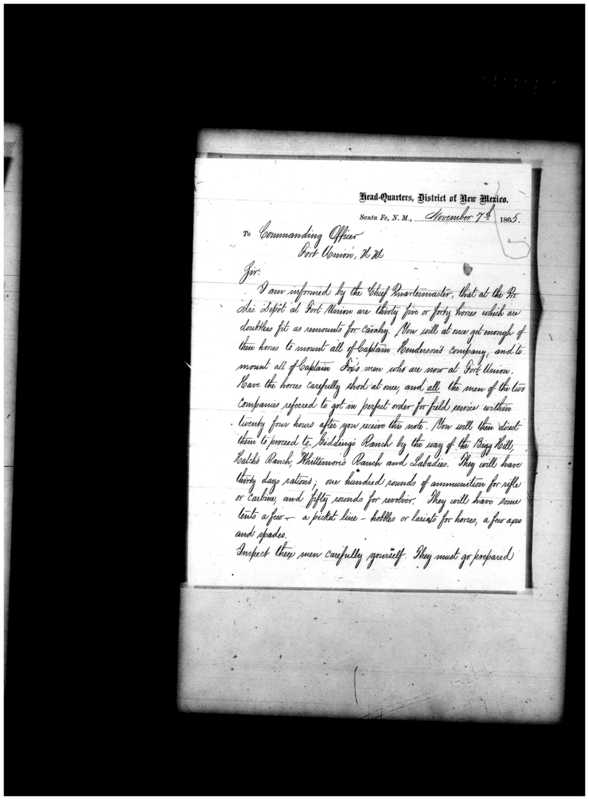 Head-Quarters, District of New Mexico.
Santa Fe, N. M., November 7th 1865.
To Commanding Officer
Fort Union, N M
Sir.
I am informed by the Chief Quartermaster, that at the
Depôt at Fort Union are thirty five or forty horses which are
doubtless fit as remounts for cavalry. You will at once get enough of
these horses to mount all of Captain Henderson's company, and to
mount all of Captain Fox's men who are now at Fort Union.
Have the horses carefully shod at once, and all the men of the two
companies referred to got in perfect order for field service within
twenty four hours after you receive this note. You will then direct
them to proceed to Giddings Ranch by the way of the Hill,
Hatch's Ranch, Whittemore's Ranch and Labadies. They will have
thirty days rations; one hundred rounds of ammunition for rifle
or carbine, and fifty rounds for revolver. They will have some
tents a few - a picket line - hobbles or lariats for horses, a few axes
and spades.
Inspect these men carefully yourself. They must go prepared